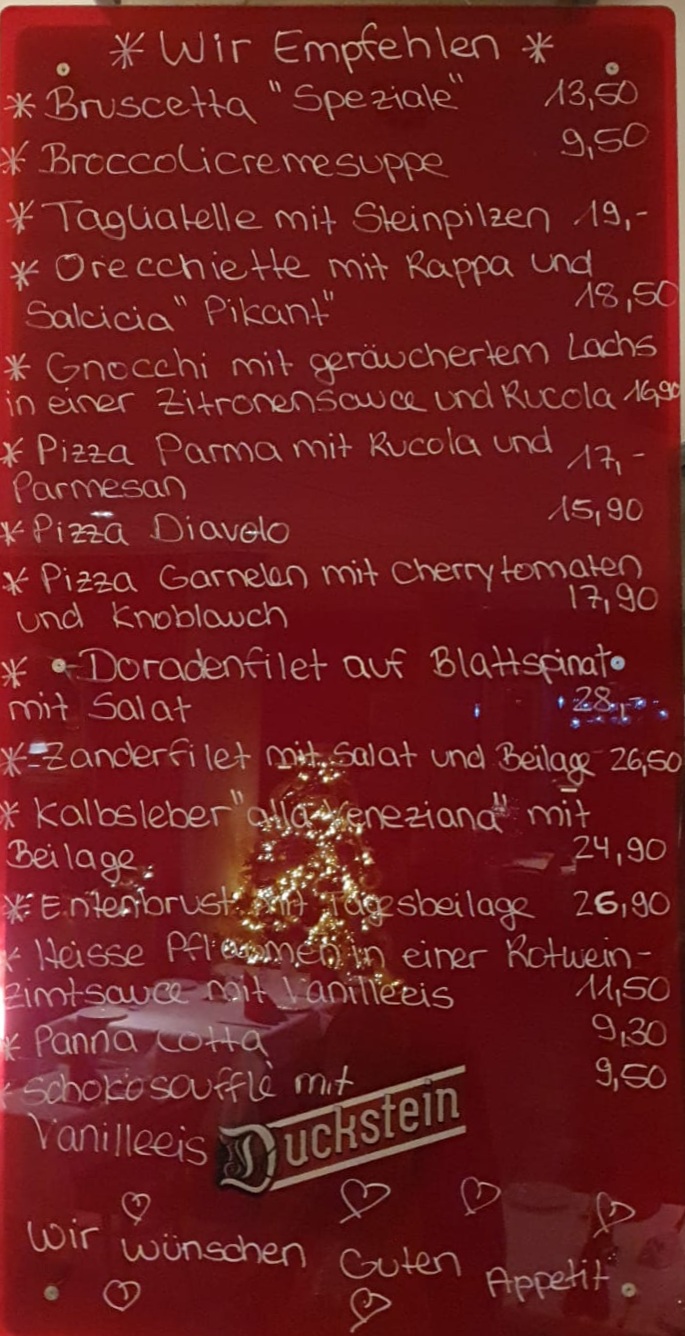 * Wir Empfehlen *
* Bruscetta "Speziale" 13,50
* Broccolicremesuppe 9,50
* Tagliatelle mit Steinpilzen 19,-
* Orecchiette mit Rappa und
Salcicia "Pikant" 18,50
* Gnocchi mit geräuchertem Lachs
in einer Zitronensauce und Rucola 16,90
* Pizza Parma mit Rucola und 17,-
Parmesan
* Pizza Diavolo 15,90
* Pizza Garnelen mit Cherrytomaten
und Knoblauch 17,90
* Doradenfilet auf Blattspinat
mit Salat 28,-
* Zanderfilet mit Salat und Beilage 26,50
* Kalbsleber "alla Veneziana" mit
Beilage 24,90
* Entenbrust mit Tagesbeilage 26,90
* Heisse Pflaumen in einer Rotwein-
zimtsauce mit Vanilleeis 11,50
* Panna Cotta 9,30
* Schokosoufflè mit 9,50
Vanilleeis
Duckstein
Wir wünschen Guten Appetit